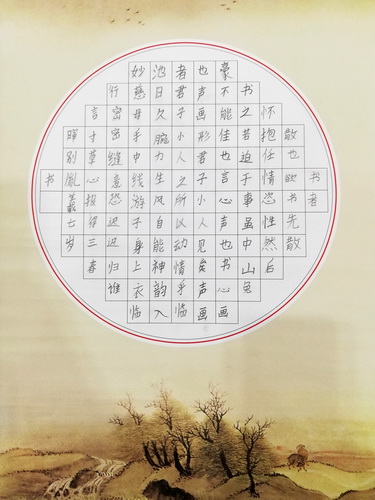 书者
散也欲书先散
怀抱任情恣性然
书之若迫于事虽中山兔
豪不能佳也言心声也书心画
也声画形君子小人见矣声画
者君子小人之所以动情乎临
池日久腕力生风自能神韵入
妙慈母手中线游子身上衣临
行密密缝意恐迟迟归谁
言寸草心报得三春
晖
书